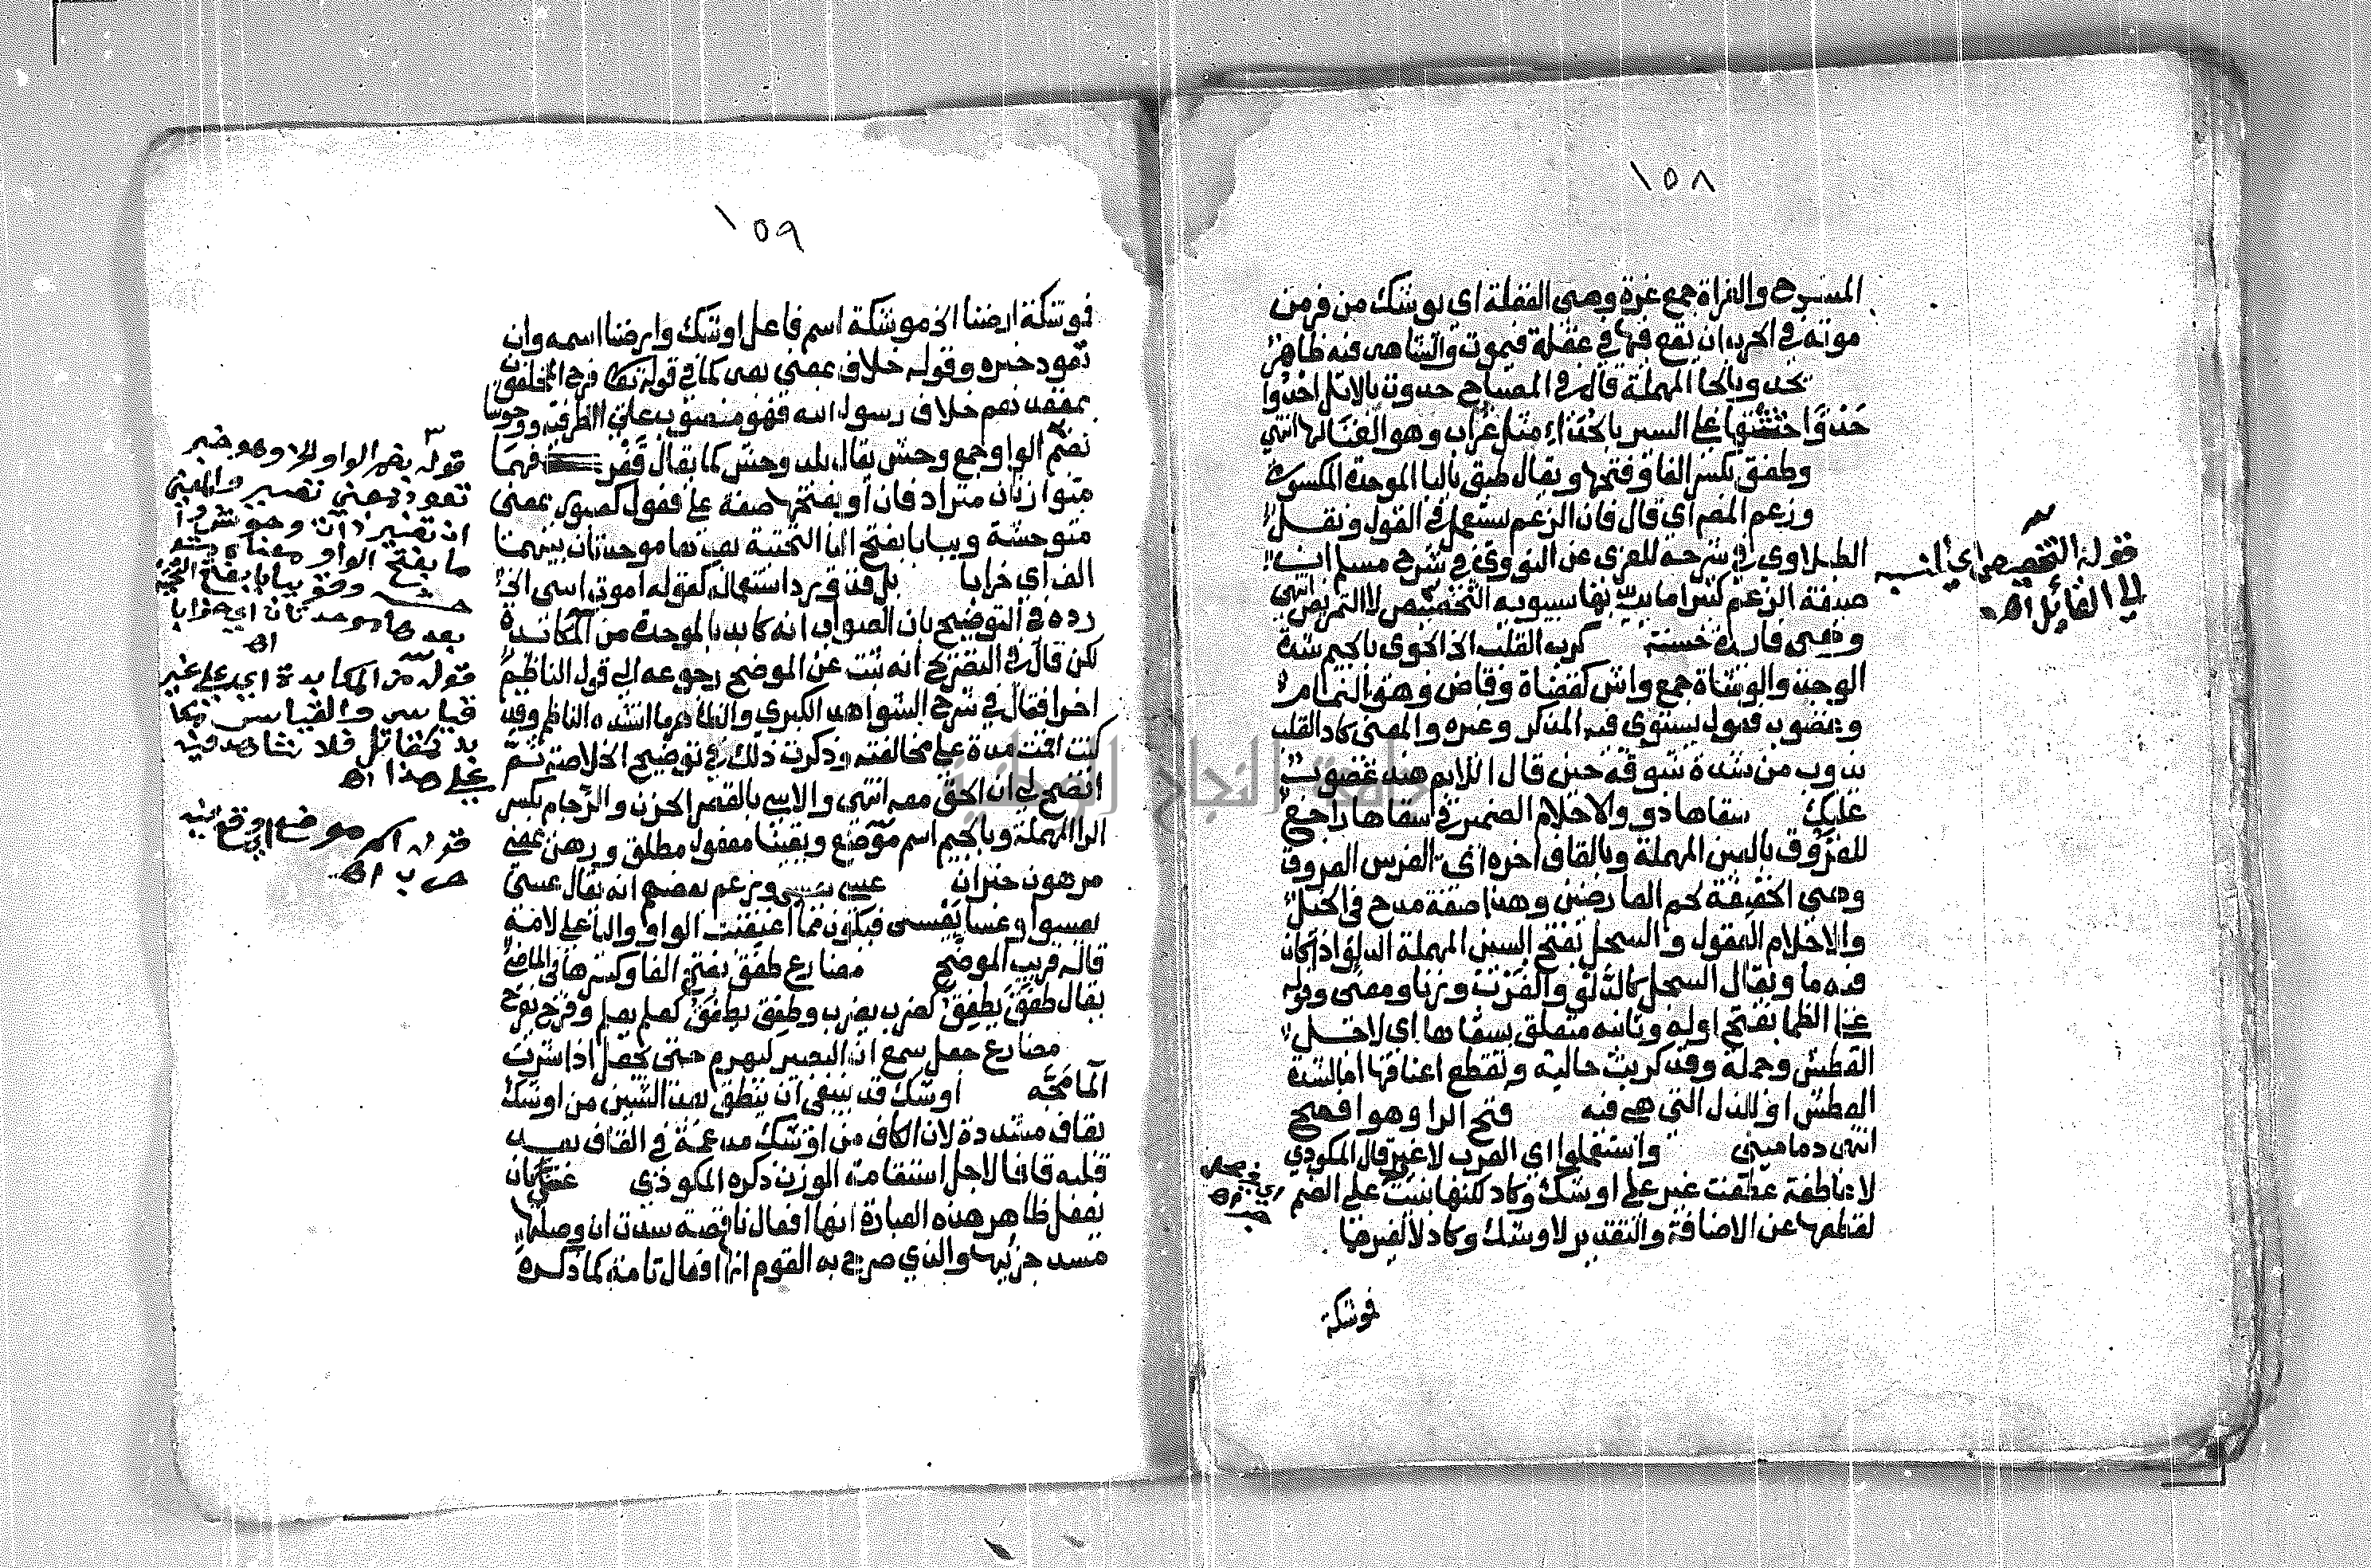 ١٥٨
المنسرح والغراة جمع غرة وهى الغفلة اى يوشك من فر من
موته فى الحرب ان يقع فيها فى غفلة فيموت والشاهد فيه ظاهر
يحدو بالحا المهملة قال فى المصباح حدوت بالابل احدوا
حدوا حثثتها على السير بالحداء مثل غراب وهو الغنا لها انتهى
وطفق بكسر الفا وفتحها ويقال طبق بالبا الموحدة المكسورة
وزعم المصر اى قال فان الزعم يستعمل فى القول ونقل
الطبلاوى فى شرحه للعزى عن النووى فى شرح مسلم ان
صيغة الزعم كثيرا ما يريد بها سيبويه التخصيص لا التمريض انتهى
وهى فايدة حسنة كرب القلب الخ الجوى بالجيم شدة
الوجد والوشاة جمع واش كقضاة وقاض وهو النمام
وغضوب فعول يستوى فيه المذكر وغيره والمعنى كاد القلب
يذوب من شدة شوقه حين قال اللايم هند غضوب
عليك سقاها ذوو الاحلام الضمير فى سقاها راجع
للعروق بالعين المهملة وبالقاف اخره اى الفرس المعروق
وهى الخفيفة لحم العارضين وهذا صفة مدح فى الخيل
والاحلام العقول والسجل بفتح السين المهملة الدلو اذا كان
فيه ما ويقال السجل كالدلو والغرب وزنا ومعنى وقوله
على الظما بفتح اوله وثانيه متعلق بسقاها اى لاجل
العطش وجملة وقد كربت حالية وتقطع اعناقها اما لشدة
العطش او للذل التى هى فيه فتح الرا وهو افصح
انتهى دمامينى واستعملوا اى العرب لا غير قال المكودى
لا عاطفة عطفت غير على اوشك وكاد لكنها بنيت على الضم
لقطعها عن الاضافة والتقدير لاوشك وكاد لا لغيرهما
فوشكة
قوله التخصيص اى النسبه
الى القائل اهـ
١٥٩
فوشكة ارضنا الخ موشكة اسم فاعل اوشك وارضنا اسمه وان
تعود خبره وقوله خلاف بمعنى بعد كما فى قوله تعالى فرح المخلفون
بمقعدهم خلاف رسول الله فهو منصوب على الظرفيه ووحوشا
بضم الواو جمع وحش يقال بلد وحش كما يقال قفر فهما
متوازنان مترادفان او بفتحها صفة على فعول كصبور بمعنى
متوحشة ويبابا بفتح اليا التحتية بعدها موحدتان بينهما
الف اى خرابا بل قد ورد استعماله كقوله اموت اسى الخ
رده فى التوضيح بان الصواب انه كابد بالموحدة من المكابدة
لكن قال فى التصريح انه ثبت عن الموضح رجوعه الى قول الناظم
اخرا فقال فى شرح الشواهد الكبرى والظاهر ما انشده الناظم وقد
كنت اقمت مدة على مخالفته وذكرت ذلك فى توضيح الخلاصة ثم
اتضح لى ان الحق معه انتهى والاسى بالقصر الحزن والرجام بكسر
الرا المهملة وبالجيم اسم موضع ويقينا مفعول مطلق ورهن بمعنى
مرهون خبر ان عسى يعسى وزعم بعضهم انه يقال عسى
يعسوا وعسا يعسى فيكون مما اعتقبت الواو واليا على لامه
قاله قريب الموضح مضارع طفق بفتح الفا وكسرها فى الماضى
يقال طفق يطفق كضرب يضرب وطفق يطفق كعلم يعلم وفرح يفرح
مضارع جعل سمع ان البعير ليهرم حتى يجعل اذا شرب
الما مجه اوشك قد ينبغى ان ينطق بعد الشين من اوشك
بقاف مشددة لان الكاف من اوشك مدغمة فى القاف بعد
قلبه قافا لاجل استقامة الوزن ذكره المكوذى غنى بان
يفعل ظاهر هذه العبارة انها افعال ناقصة سدت ان وصلتها
مسد جزئيها والذى صرح به القوم انها افعال تامة كما ذكره
قوله بضم الواو الخ وهو خبر
تعود بمعنى تصير والمعنى
ان تصير
ما بفتح الواو معناه
وقوله يبابا بفتح التحتية
بعدها موحدتان اى خرابا
اهـ
قوله من المكابدة اى على غير
قياس والقياس
بد كتقاتل فلا شاهد فيه
على هذا اهـ
قوله اسم موضع اى وقع فيه
حرب اهـ